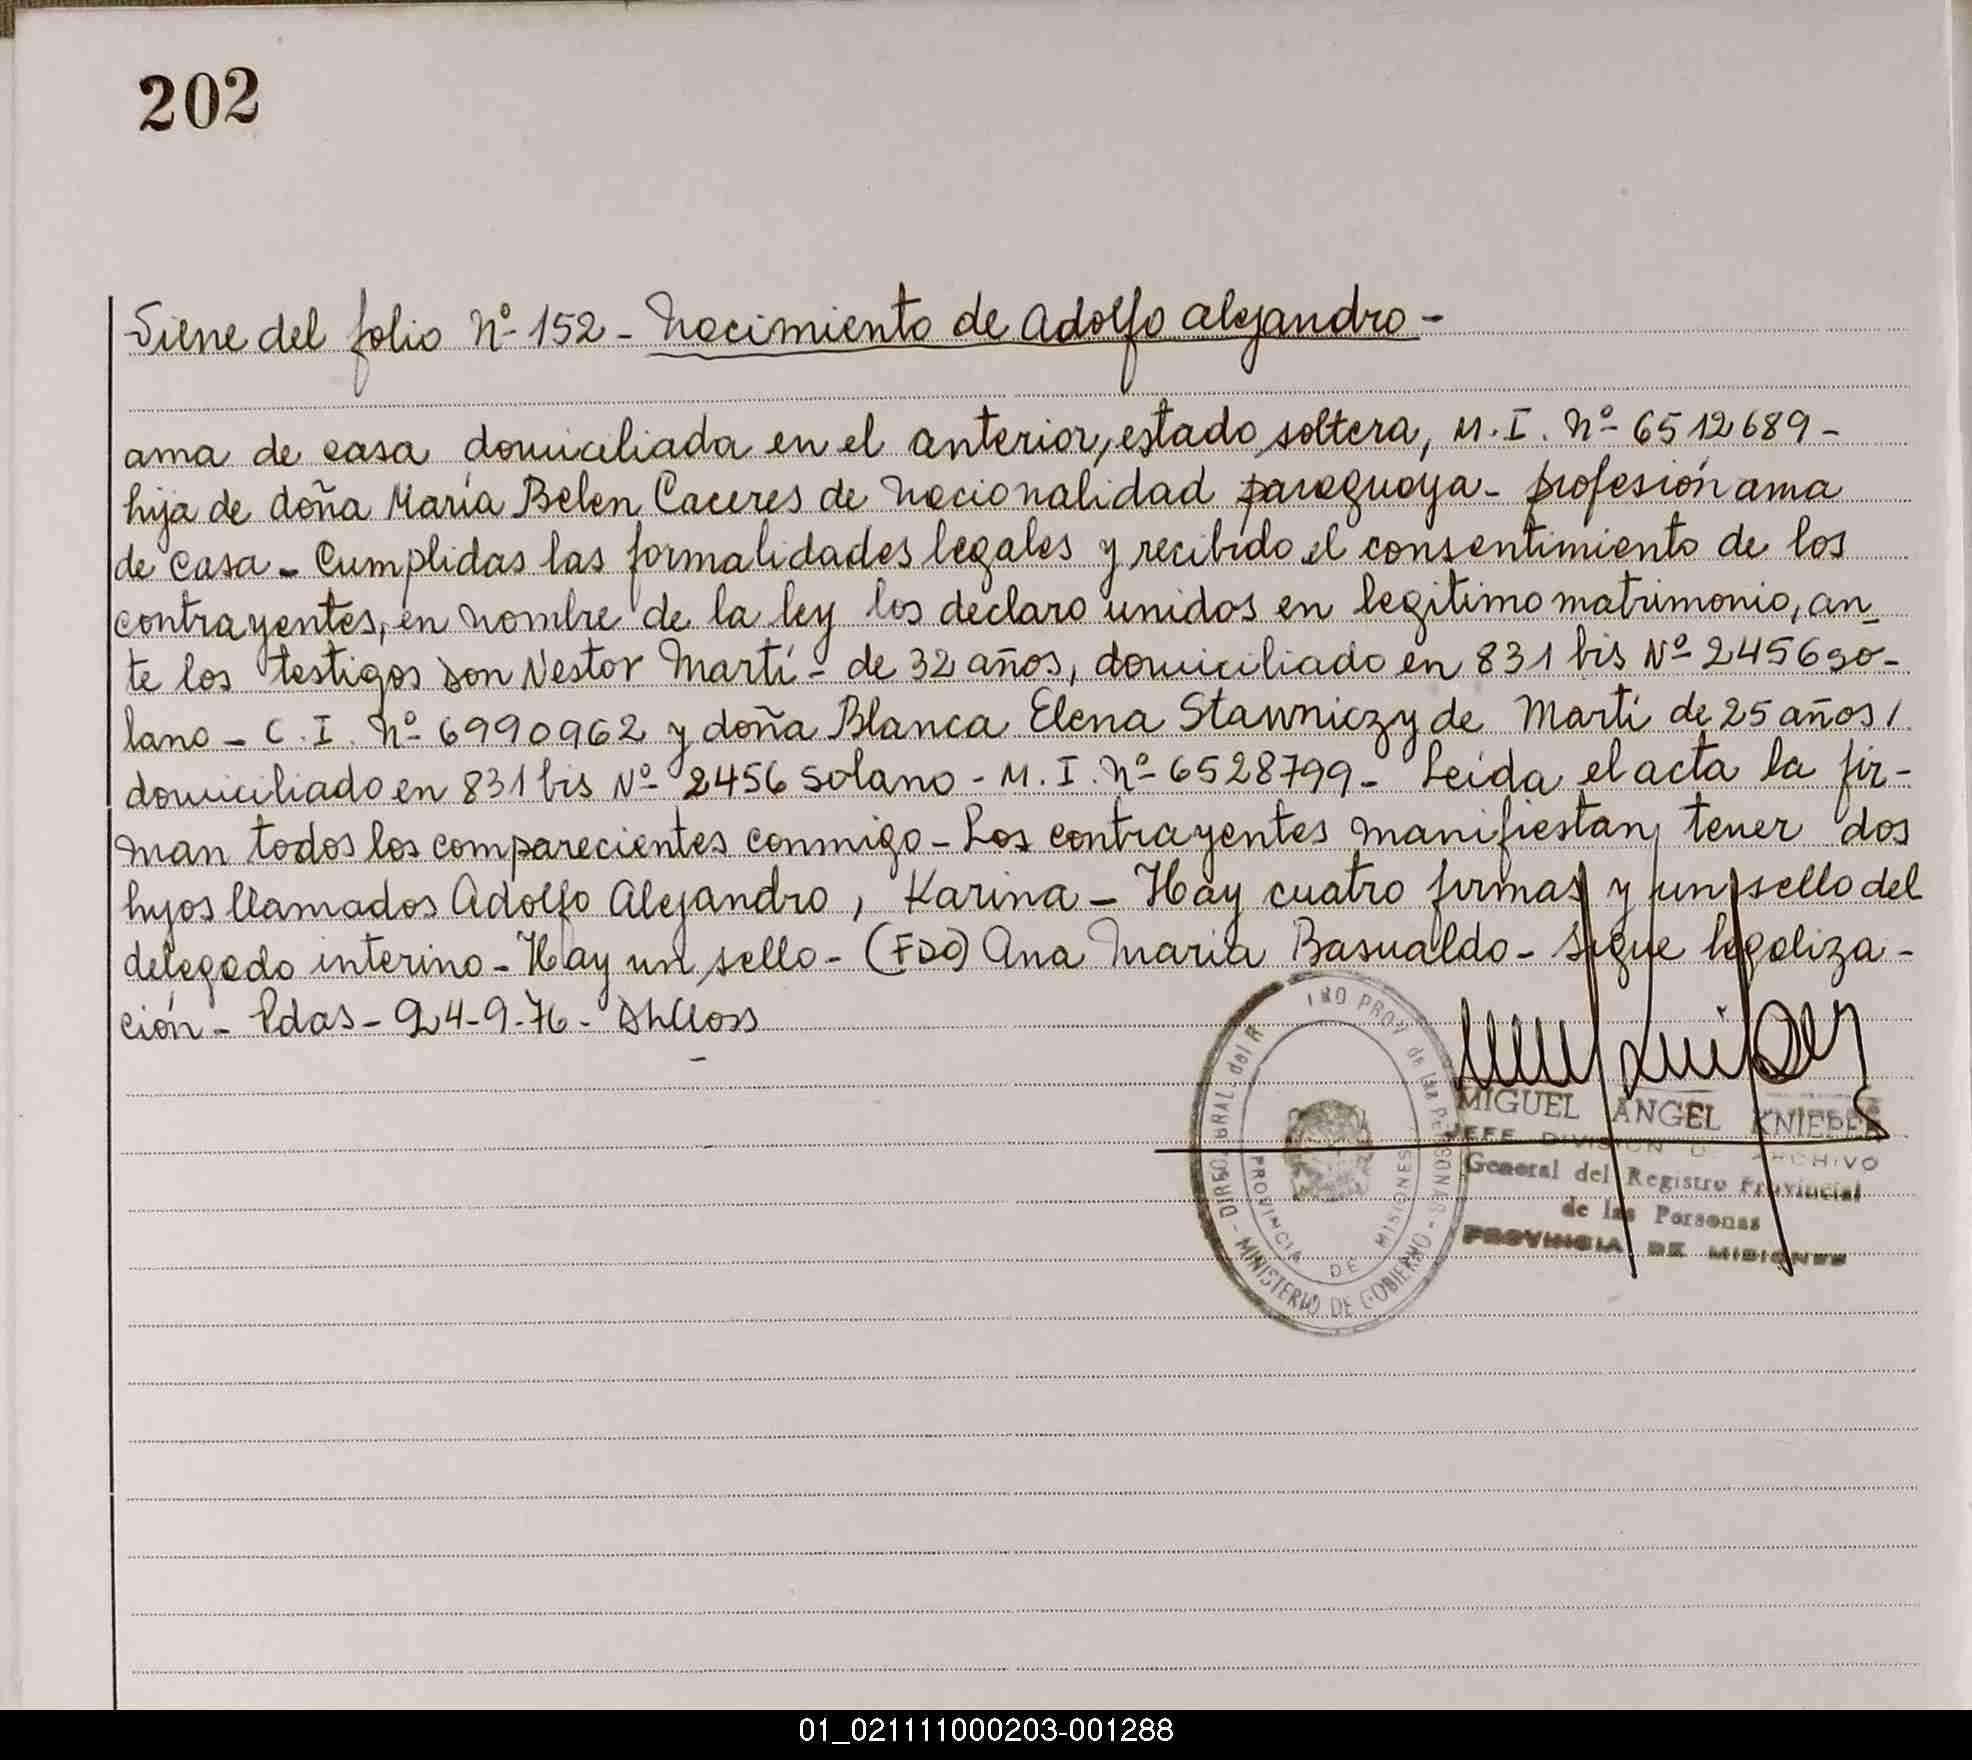 202
Viene del folio Nº 152 - Nacimiento de Adolfo Alejandro -
ama de casa domiciliada en el anterior, estado soltera, M.I. Nº 6512689 -
hija de doña María Belen Caceres de nacionalidad paraguaya - profesión ama
de casa - Cumplidas las formalidades legales y recibido el consentimiento de los
contrayentes, en nombre de la ley los declaro unidos en legitimo matrimonio, an
te los testigos don Nestor Martí - de 32 años, domiciliado en 831 bis Nº 2456 so-
lano - C.I. Nº 6990962 y doña Blanca Elena Stawniczy de Martí de 25 años,
domiciliado en 831 bis Nº 2456 Solano - M.I. Nº 6528799 - Leída el acta la fir-
man todos los comparecientes conmigo - Los contrayentes manifiestan tener dos
hijos llamados Adolfo Alejandro, Karina - Hay cuatro firmas y un sello del
delegado interino - Hay un sello - (FDO) Ana Maria Basualdo - Sigue legaliza-
ción - Pdas - 24-9-76 -
MIGUEL ANGEL KNIEPER
JEFE DIVISION DE ARCHIVO
General del Registro Provincial
de las Personas
PROVINCIA DE MISIONES
PROV de las PERSONAS - MINISTERIO DE GOBIERNO -
PROVINCIA DE MISIONES
01_021111000203-001288